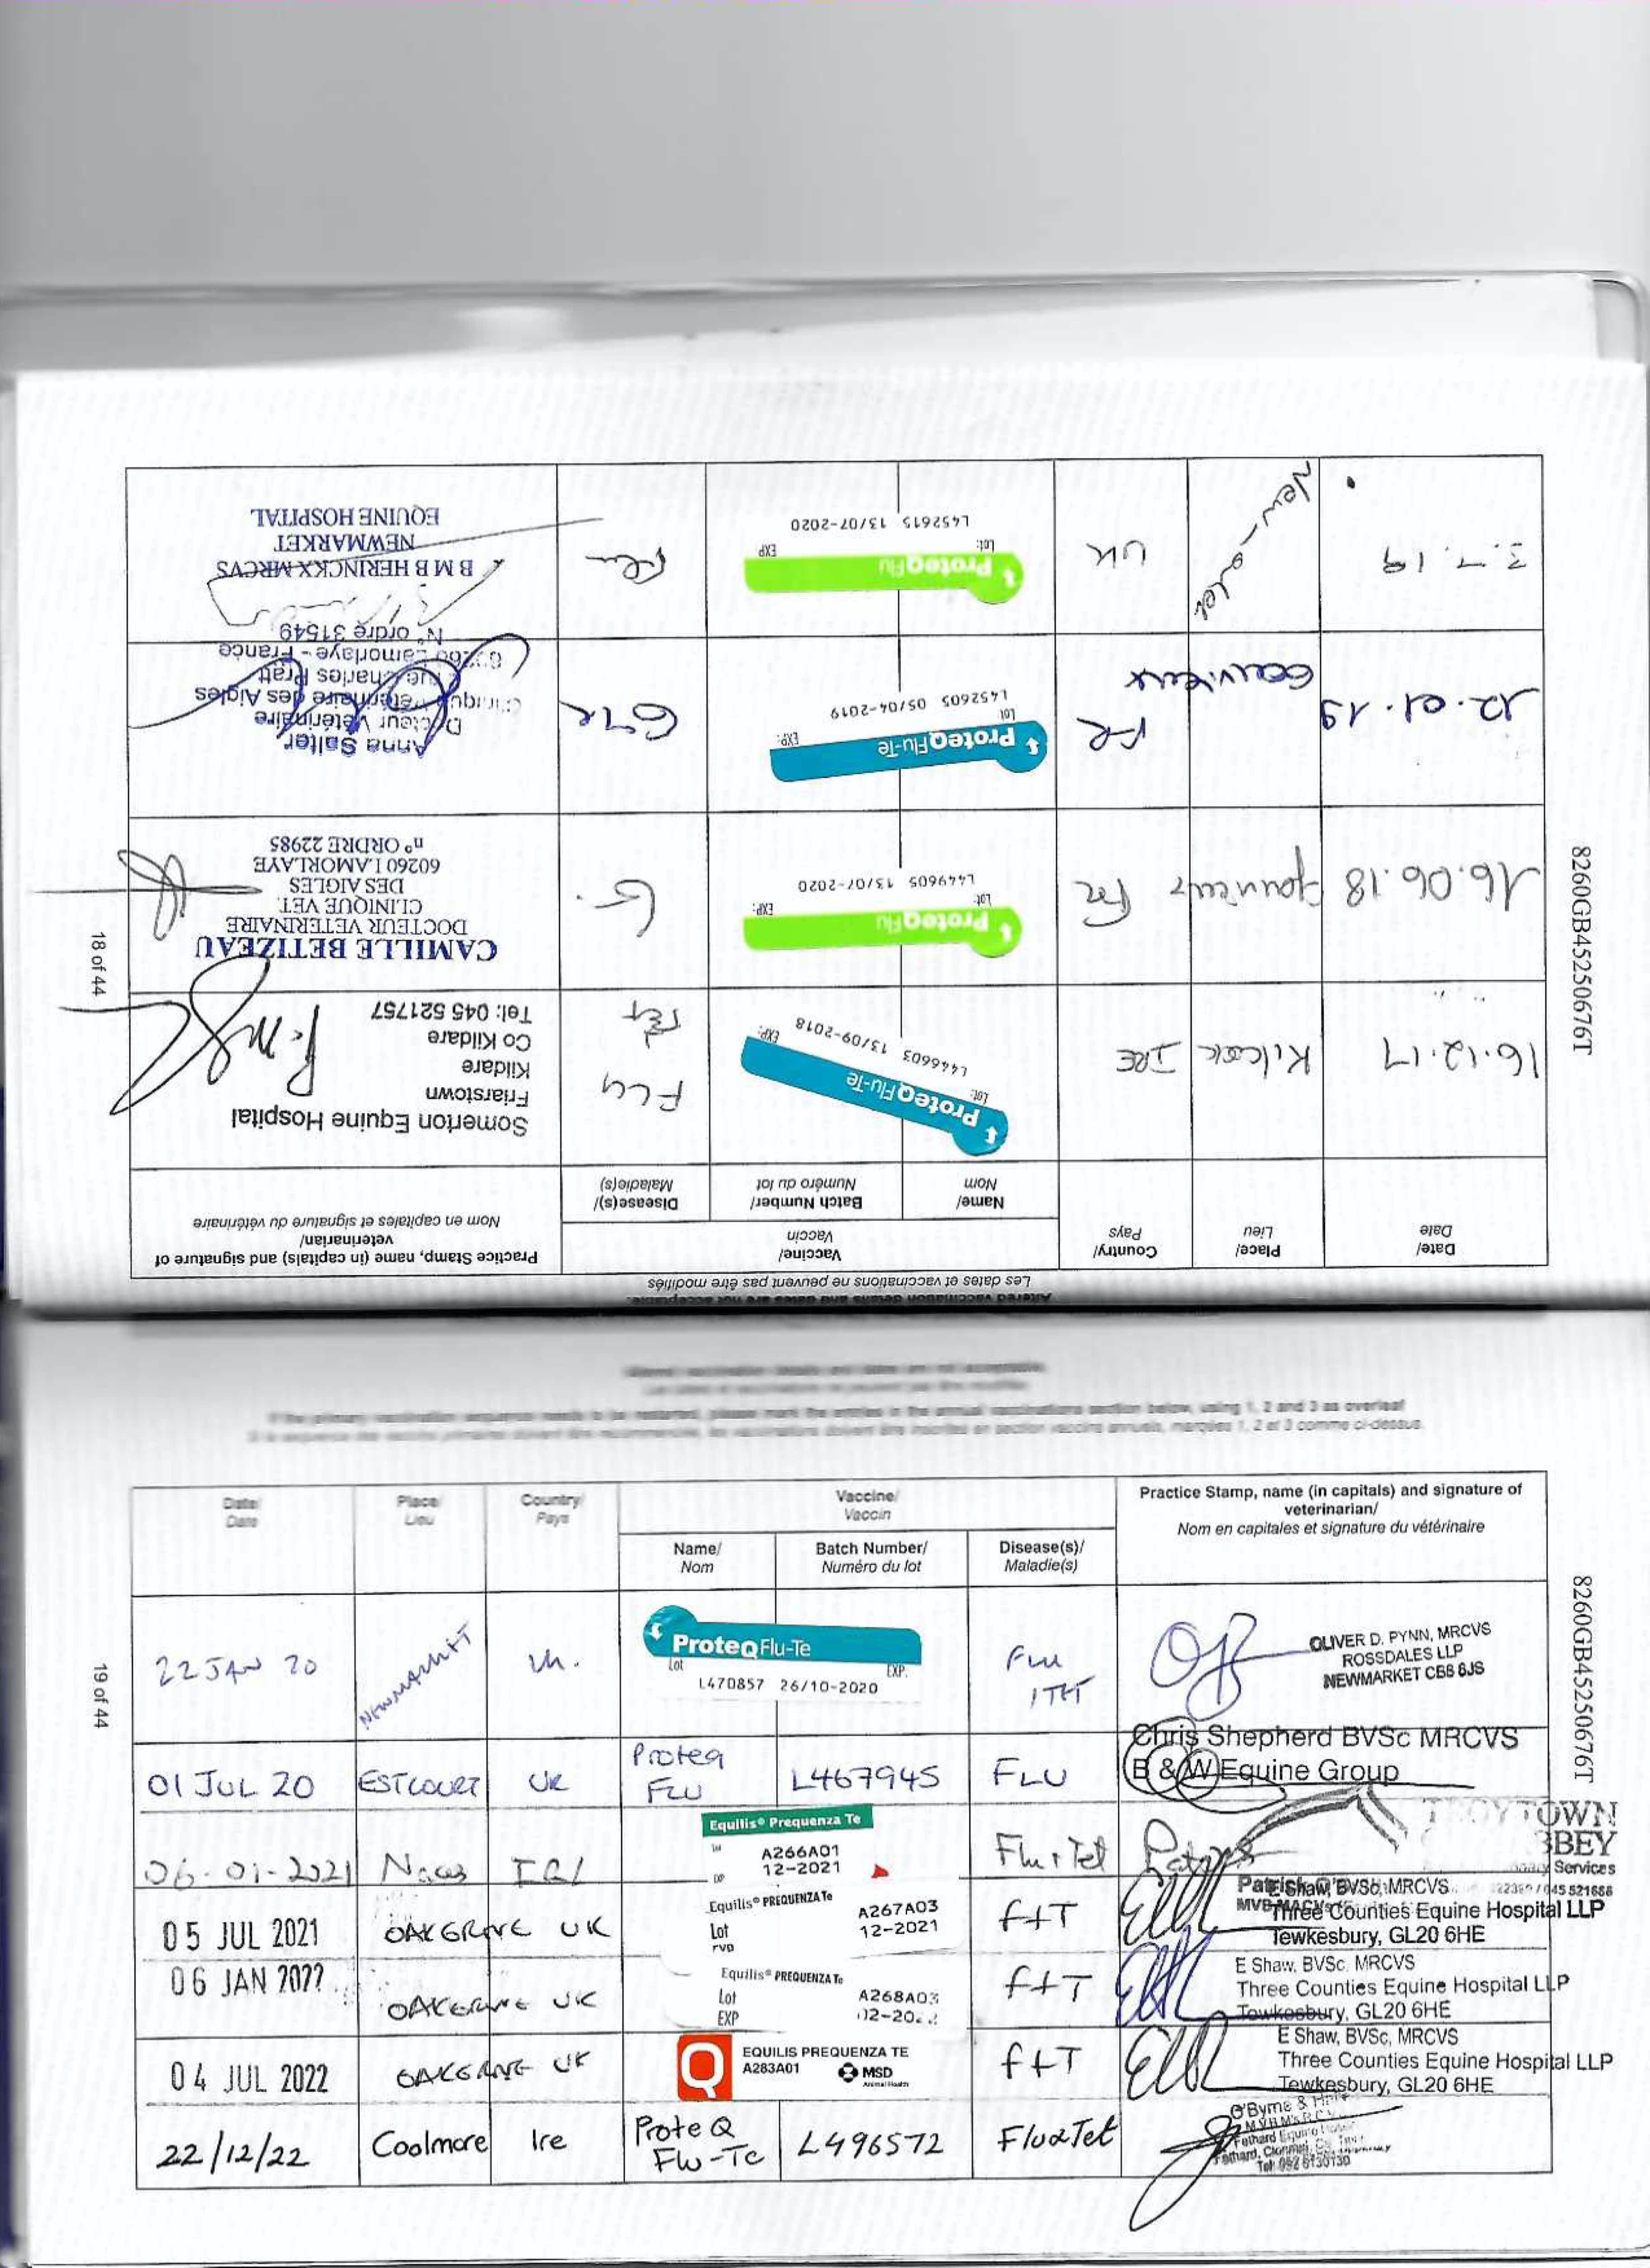 Altered vaccination details and dates are not acceptable.
Les dates et vaccinations ne peuvent pas être modifiés
Date/
Date
Place/
Lieu
Country/
Pays
Vaccine/
Vaccin
Name/
Nom
Batch Number/
Numéro du lot
Disease(s)/
Maladie(s)
Practice Stamp, name (in capitals) and signature of
veterinarian/
Nom en capitales et signature du vétérinaire
16.12.17
Kilcock
IRE
ProteqFlu-Te
Lot:
EXP:
L446603 13/09-2018
FLU
Tet
Somerton Equine Hospital
Friarstown
Kildare
Co Kildare
Tel: 045 521757
16.06.18
Gouvieux
FR
ProteqFlu
Lot:
EXP:
L449605 13/07-2020
G.
CAMILLE BETIZEAU
DOCTEUR VETERINAIRE
CLINIQUE VET.
DES AIGLES
60260 LAMORLAYE
n° ORDRE 22985
12.01.19
Gouvieux
FR
ProteqFlu-Te
Lot
EXP:
L452605 05/04-2019
Anna Salter
Docteur Vétérinaire
Clinique Vétérinaire des Aigles
Rue Charles Pratt
Lamorlaye - France
N° ordre 31549
3.7.19
UK
ProteqFlu
Lot:
EXP
L452615 13/07-2020
Flu
B M B HERINCKX MRCVS
NEWMARKET
EQUINE HOSPITAL
18 of 44
8260GB45250676T
Altered vaccination details and dates are not acceptable
Les dates et vaccinations ne peuvent pas être modifiés
If the primary vaccination sequence needs to be restarted, please mark the entries in the annual vaccinations section below, using 1, 2 and 3 as overleaf
section vaccins annuels, marqées 1, 2 et 3 comme ci-dessus.
Date/
Date
Place/
Lieu
Country/
Pays
Vaccine/
Vaccin
Name/
Nom
Batch Number/
Numéro du lot
Disease(s)/
Maladie(s)
Practice Stamp, name (in capitals) and signature of
veterinarian/
Nom en capitales et signature du vétérinaire
22 JAN 20
NEWMARKET
UK.
ProteqFlu-Te
Lot
EXP.
L470857 26/10-2020
Flu
/TET
OLIVER D. PYNN, MRCVS
ROSSDALES LLP
NEWMARKET CB8 8JS
01 JUL 20
ESTCOURT
UK
Proteq
FLU
L467945
FLU
Chris Shepherd BVSc MRCVS
B & W Equine Group
06-01-2021
Naas
IRL
Equilis® Prequenza Te
A266A01
12-2021
Flu + Tet
TROYTOWN
BBEY
Services
05 JUL 2021
OAKGROVE
UK
Equilis® PREQUENZA Te
Lot
A267A03
12-2021
F+T
E Shaw, BVSc, MRCVS
Three Counties Equine Hospital LLP
Tewkesbury, GL20 6HE
06 JAN 2022
OAKGROVE
UK
Equilis® PREQUENZA Te
Lot
EXP
A268A03
F+T
E Shaw, BVSc, MRCVS
Three Counties Equine Hospital LLP
Tewkesbury, GL20 6HE
04 JUL 2022
OAKGROVE
UK
Q
EQUILIS PREQUENZA TE
A283A01
MSD
Animal Health
F+T
E Shaw, BVSc, MRCVS
Three Counties Equine Hospital LLP
Tewkesbury, GL20 6HE
22/12/22
Coolmore
Ire
ProteQ
Flu-Te
L496572
Flu&Tet
O'Byrne &
Fethard
Tel: 052 6130130
19 of 44
8260GB45250676T